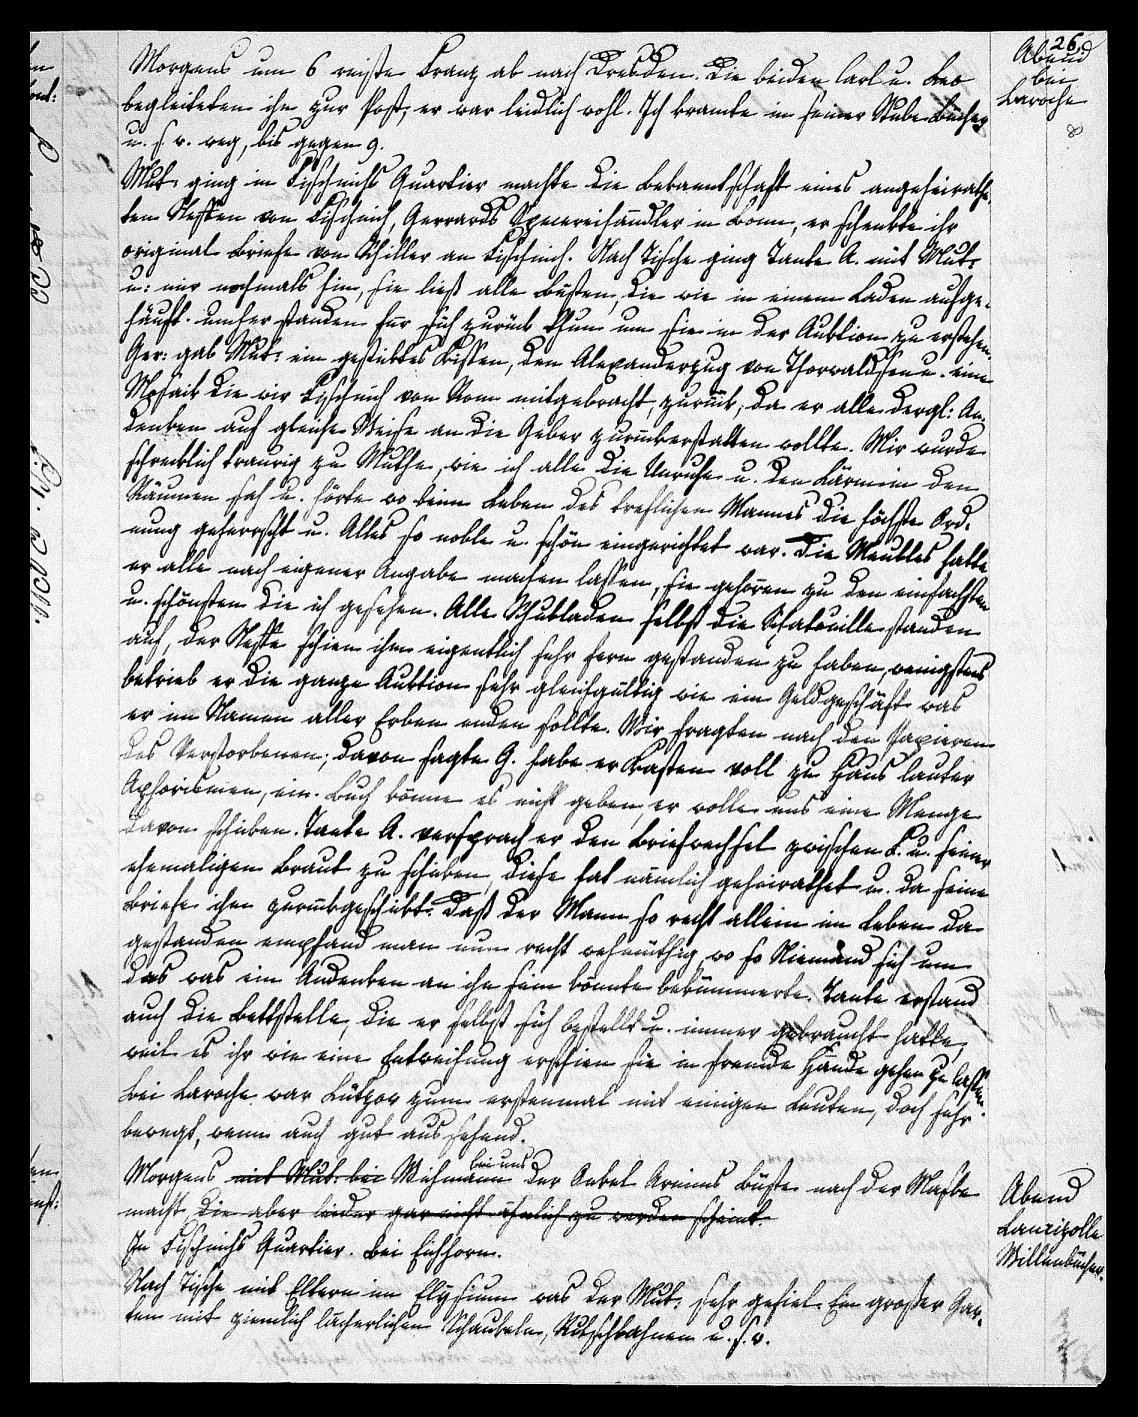 26.
Abend
bei
Laroche
Morgens um 6 reißte Franz ab nach Dresden. Die beiden, Carl u. Leo
begleiteten ihn zur Post, er war leidlich wohl. Ich kramte in seiner Stube Bücher
u. s. w. weg, bis gegen 9.
Mut: ging in Fischnichs Quartier machte die Bekanntschaft eines angeheirathe-
ten Neffen von Fischnich, Gerrards Specereihändler in Bonn, er schenkte ihr
original Briefe von Schiller an Fischnich. Nach Tische ging Tante A. mit Mut:
u: mir nochmals hin, sie ließ alle Büsten, die wie in einem Laden aufge-
häuft umher standen für sich zurück thun um sie in der Auktion zu erstehen.
Ger: gab Mut: ein gesticktes Kissen, den Alexanderzug von Thorwaldsen u. eine
Mosaik die wir Fischnich von Rom mitgebracht, zurück, da er alle dergl: An-
denken auf gleiche Weise an die Geber zurückerstatten wollte. Mir wurde
schrecklich traurig zu Muthe, wie ich alle die Unruhe u. den Lärm in den
Räumen sah u. hörte wo beim Leben des treflichen Mannes die höchste Ord-
nung geherrscht u. Alles so noble u. schön eingerichtet war. Die Meubles hatte
er alle nach eigener Angabe machen lassen, sie gehören zu den einfachsten
u. schönsten die ich gesehen. Alle Schubladen selbst die Schatouille standen
auf, der Neffe schien ihm eigentlich sehr fern gestanden zu haben, wenigstens
betrieb er die ganze Auktion sehr gleichgültig wie ein Geldgeschäft was
er im Namen aller Erben enden sollte. Wir fragten nach den Papieren
des Verstorbenen; davon sagte G. habe er Kasten voll zu Haus lauter
Aphorismen, ein Buch könne es nicht geben, er wolle uns eine Menge
davon schicken. Tante A. versprach er den Briefwechsel zwischen F. u. seiner
ehemaligen Braut zu schicken, diese hat nämlich geheirathet u. da seine
Briefe ihm zurückgeschickt. Daß der Mann so recht allein im Leben da
gestanden empfand man nun recht wehmüthig, wo so Niemand sich um
das was ein Andenken an ihn sein könnte bekümmerte. Tante erstand
auch die Bettstelle, die er selbst sich bestellt u. immer gebraucht hatte,
weil es ihr wie eine Entweihung erschien sie in fremde Hände gehen zu lassen.
Bei Laroche war Lützow zum erstenmal mit einigen Leuten, doch sehr
bewegt, wenn auch gut aussehend.
Abend
Lancizolle
Willenbücher.
Morgens mit Mut. bei Wichmann bei uns der Onkel Arnims Büste nach der Maske
macht die aber leider gar nicht ähnlich zu werden scheint.
In Fischnichs Quartier. Bei Eichhorn.
Nach Tische mit Eltern im Elysium was der Mut: sehr gefiel. Ein großer Gar-
ten mit ziemlich lächerlichen Schaukeln, Rutschbahnen u. s. w.